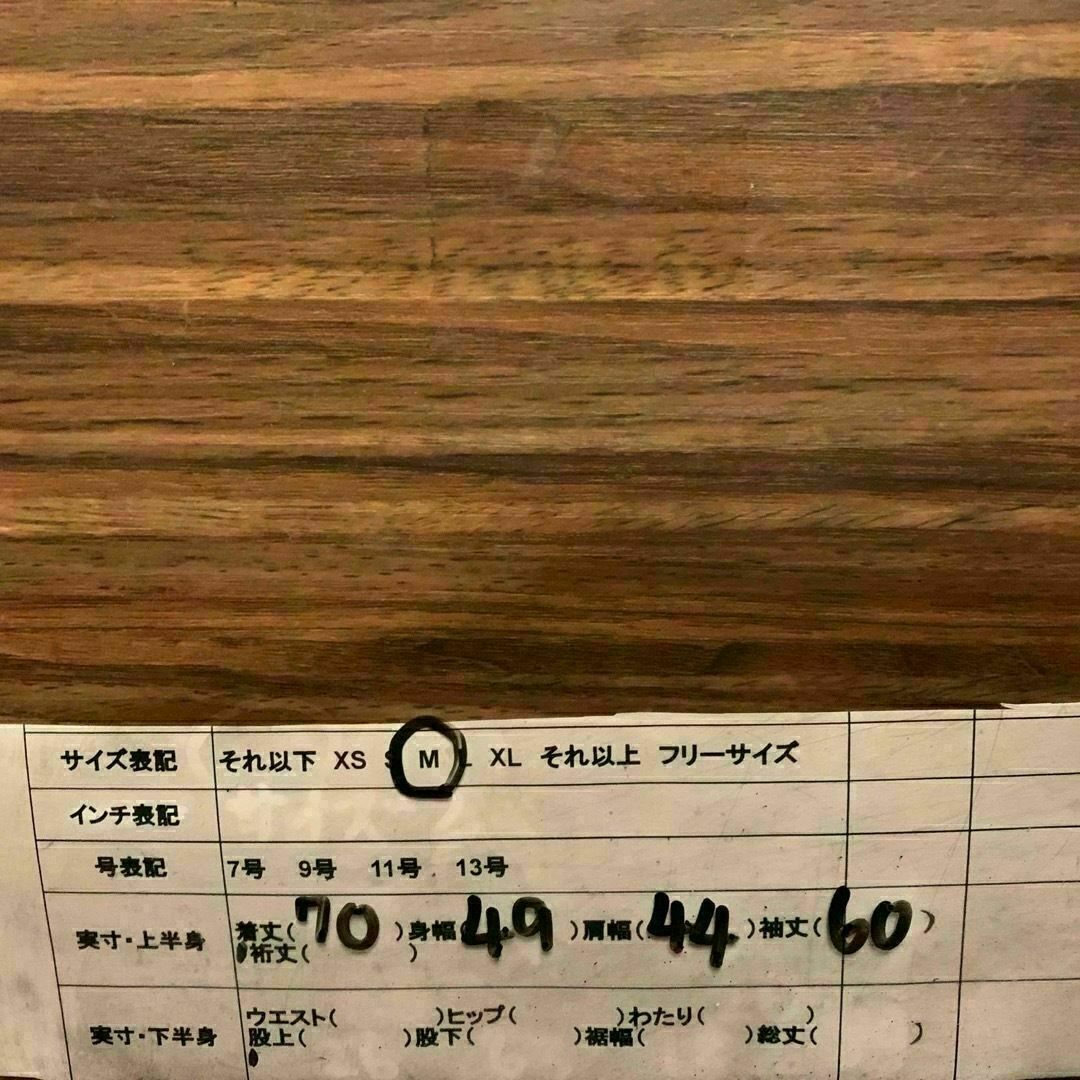 サイズ表記 それ以下 XS S M L XL それ以上 フリーサイズ
インチ表記
号表記 7号 9号 11号 13号
実寸・上半身 着丈(70)身幅(49)肩幅(44)袖丈(60)
裄丈( )
実寸・下半身 ウエスト( )ヒップ( )わたり( )
股上( )股下( )裾幅( )総丈( )